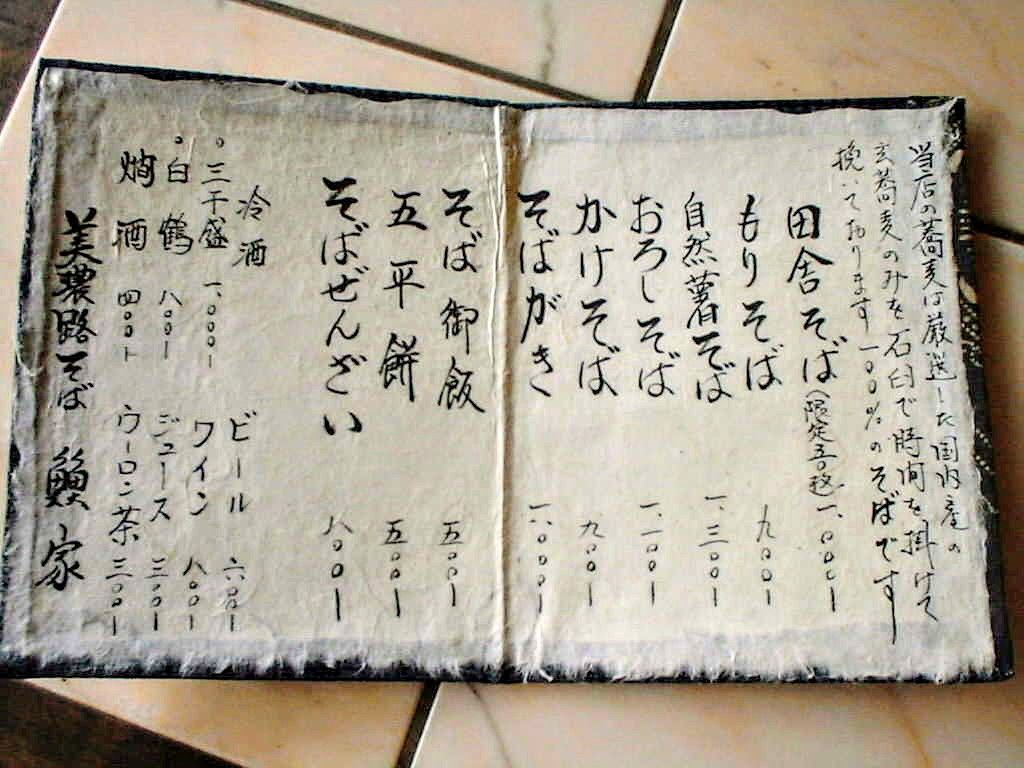 当店の蕎麦は厳選した国内産の
玄蕎麦のみを石臼で時間を掛けて
挽いております 一〇〇%のそばです
田舎そば(限定五〇路) 一、〇〇〇ー
もりそば 九〇〇ー
自然薯そば 一、三〇〇ー
おろしそば 一、一〇〇ー
かけそば 九〇〇ー
そばがき 一、〇〇〇ー
そば御飯 五〇〇ー
五平餅 五〇〇ー
そばぜんざい 八〇〇ー
冷酒
。三千盛 一、〇〇〇ー
。白鶴 八〇〇ー
燗酒 四〇〇ー
ビール 六〇〇ー
ワイン 八〇〇ー
ジュース 三〇〇ー
ウーロン茶 三〇〇ー
美濃路そば 家